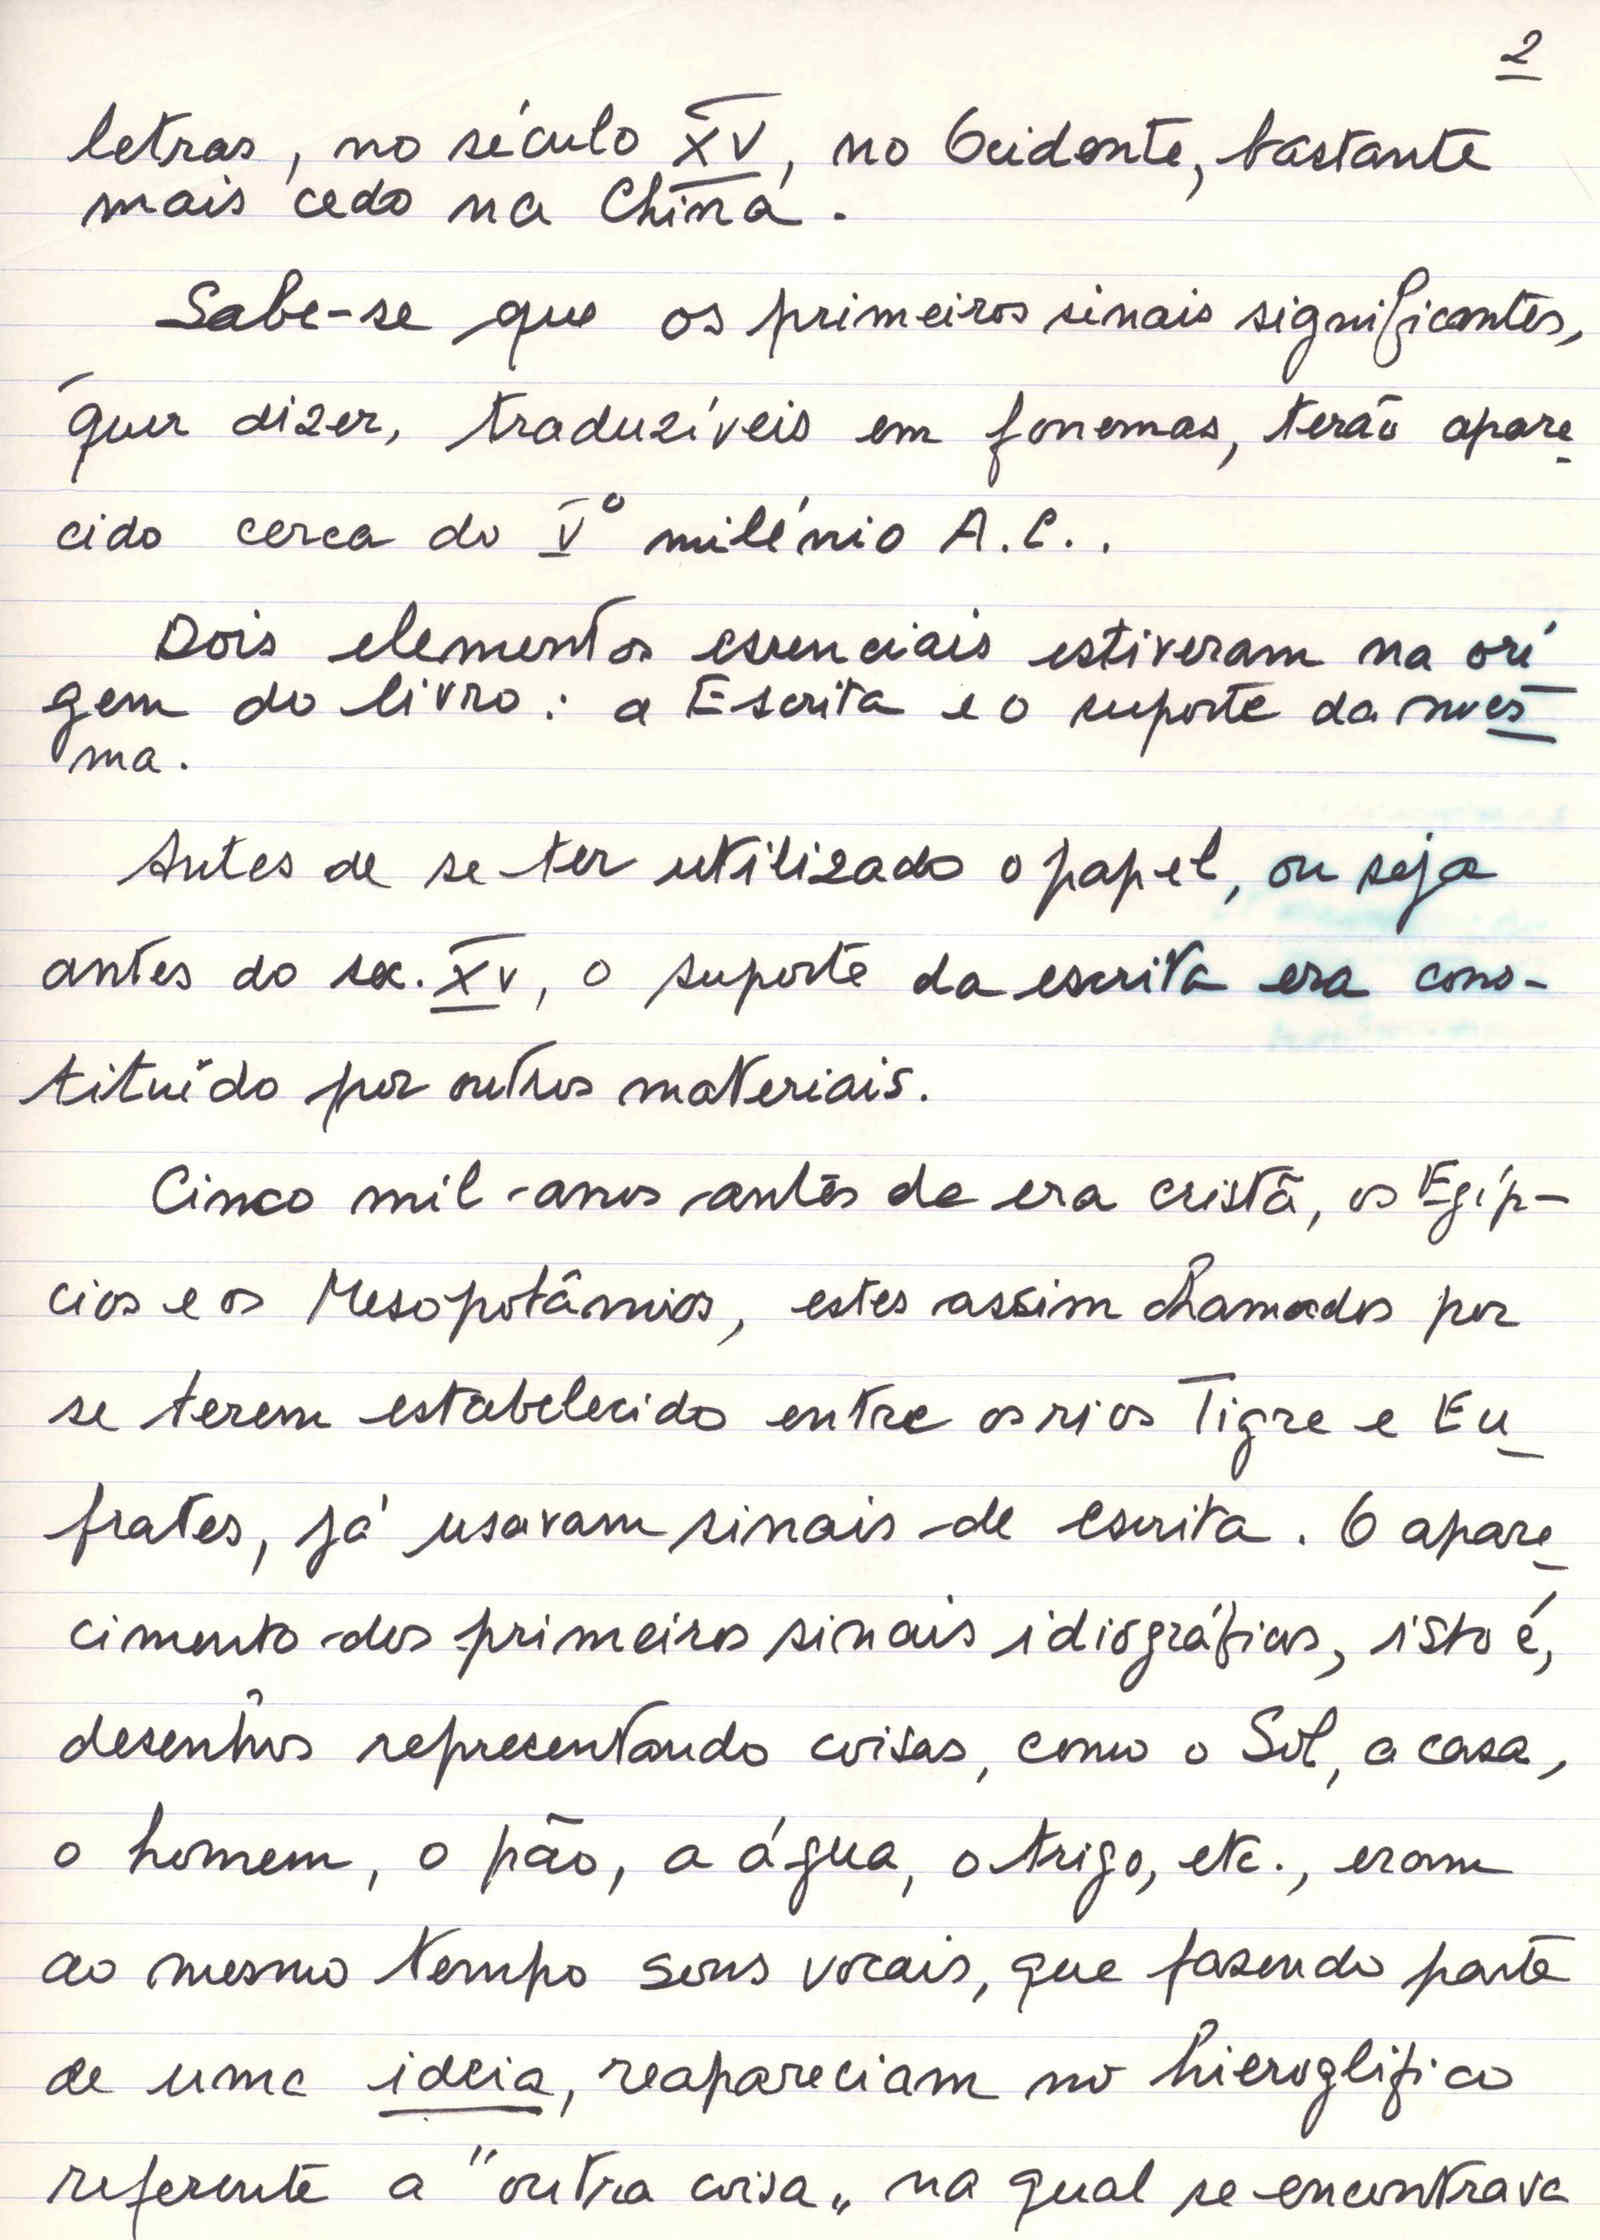 2
letras, no século XV, no Ocidente, bastante
mais cedo na China.
Sabe-se que os primeiros sinais significantes,
quer dizer, traduzíveis em fonemas, terão apare
cido cerca do Vº milénio A.C..
Dois elementos essenciais estiveram na orí
gem do livro: a Escrita e o suporte da mes
ma.
Antes de se ter utilizado o papel, ou seja
antes do sec. XV, o suporte da escrita era cons-
tituído por outros materiais.
Cinco mil anos antes da era cristã, os Egíp-
cios e os Mesopotâmios, estes assim chamados por
se terem estabelecido entre os rios Tigre e Eu
frates, já usavam sinais de escrita. O apare
cimento dos primeiros sinais idiográficos, isto é,
desenhos representando coisas, como o Sol, a casa,
o homem, o pão, a água, o trigo, etc., eram
ao mesmo tempo sons vocais, que fazendo parte
de uma ideia, reapareciam no hieroglífico
referente a "outra coisa„ na qual se encontrava